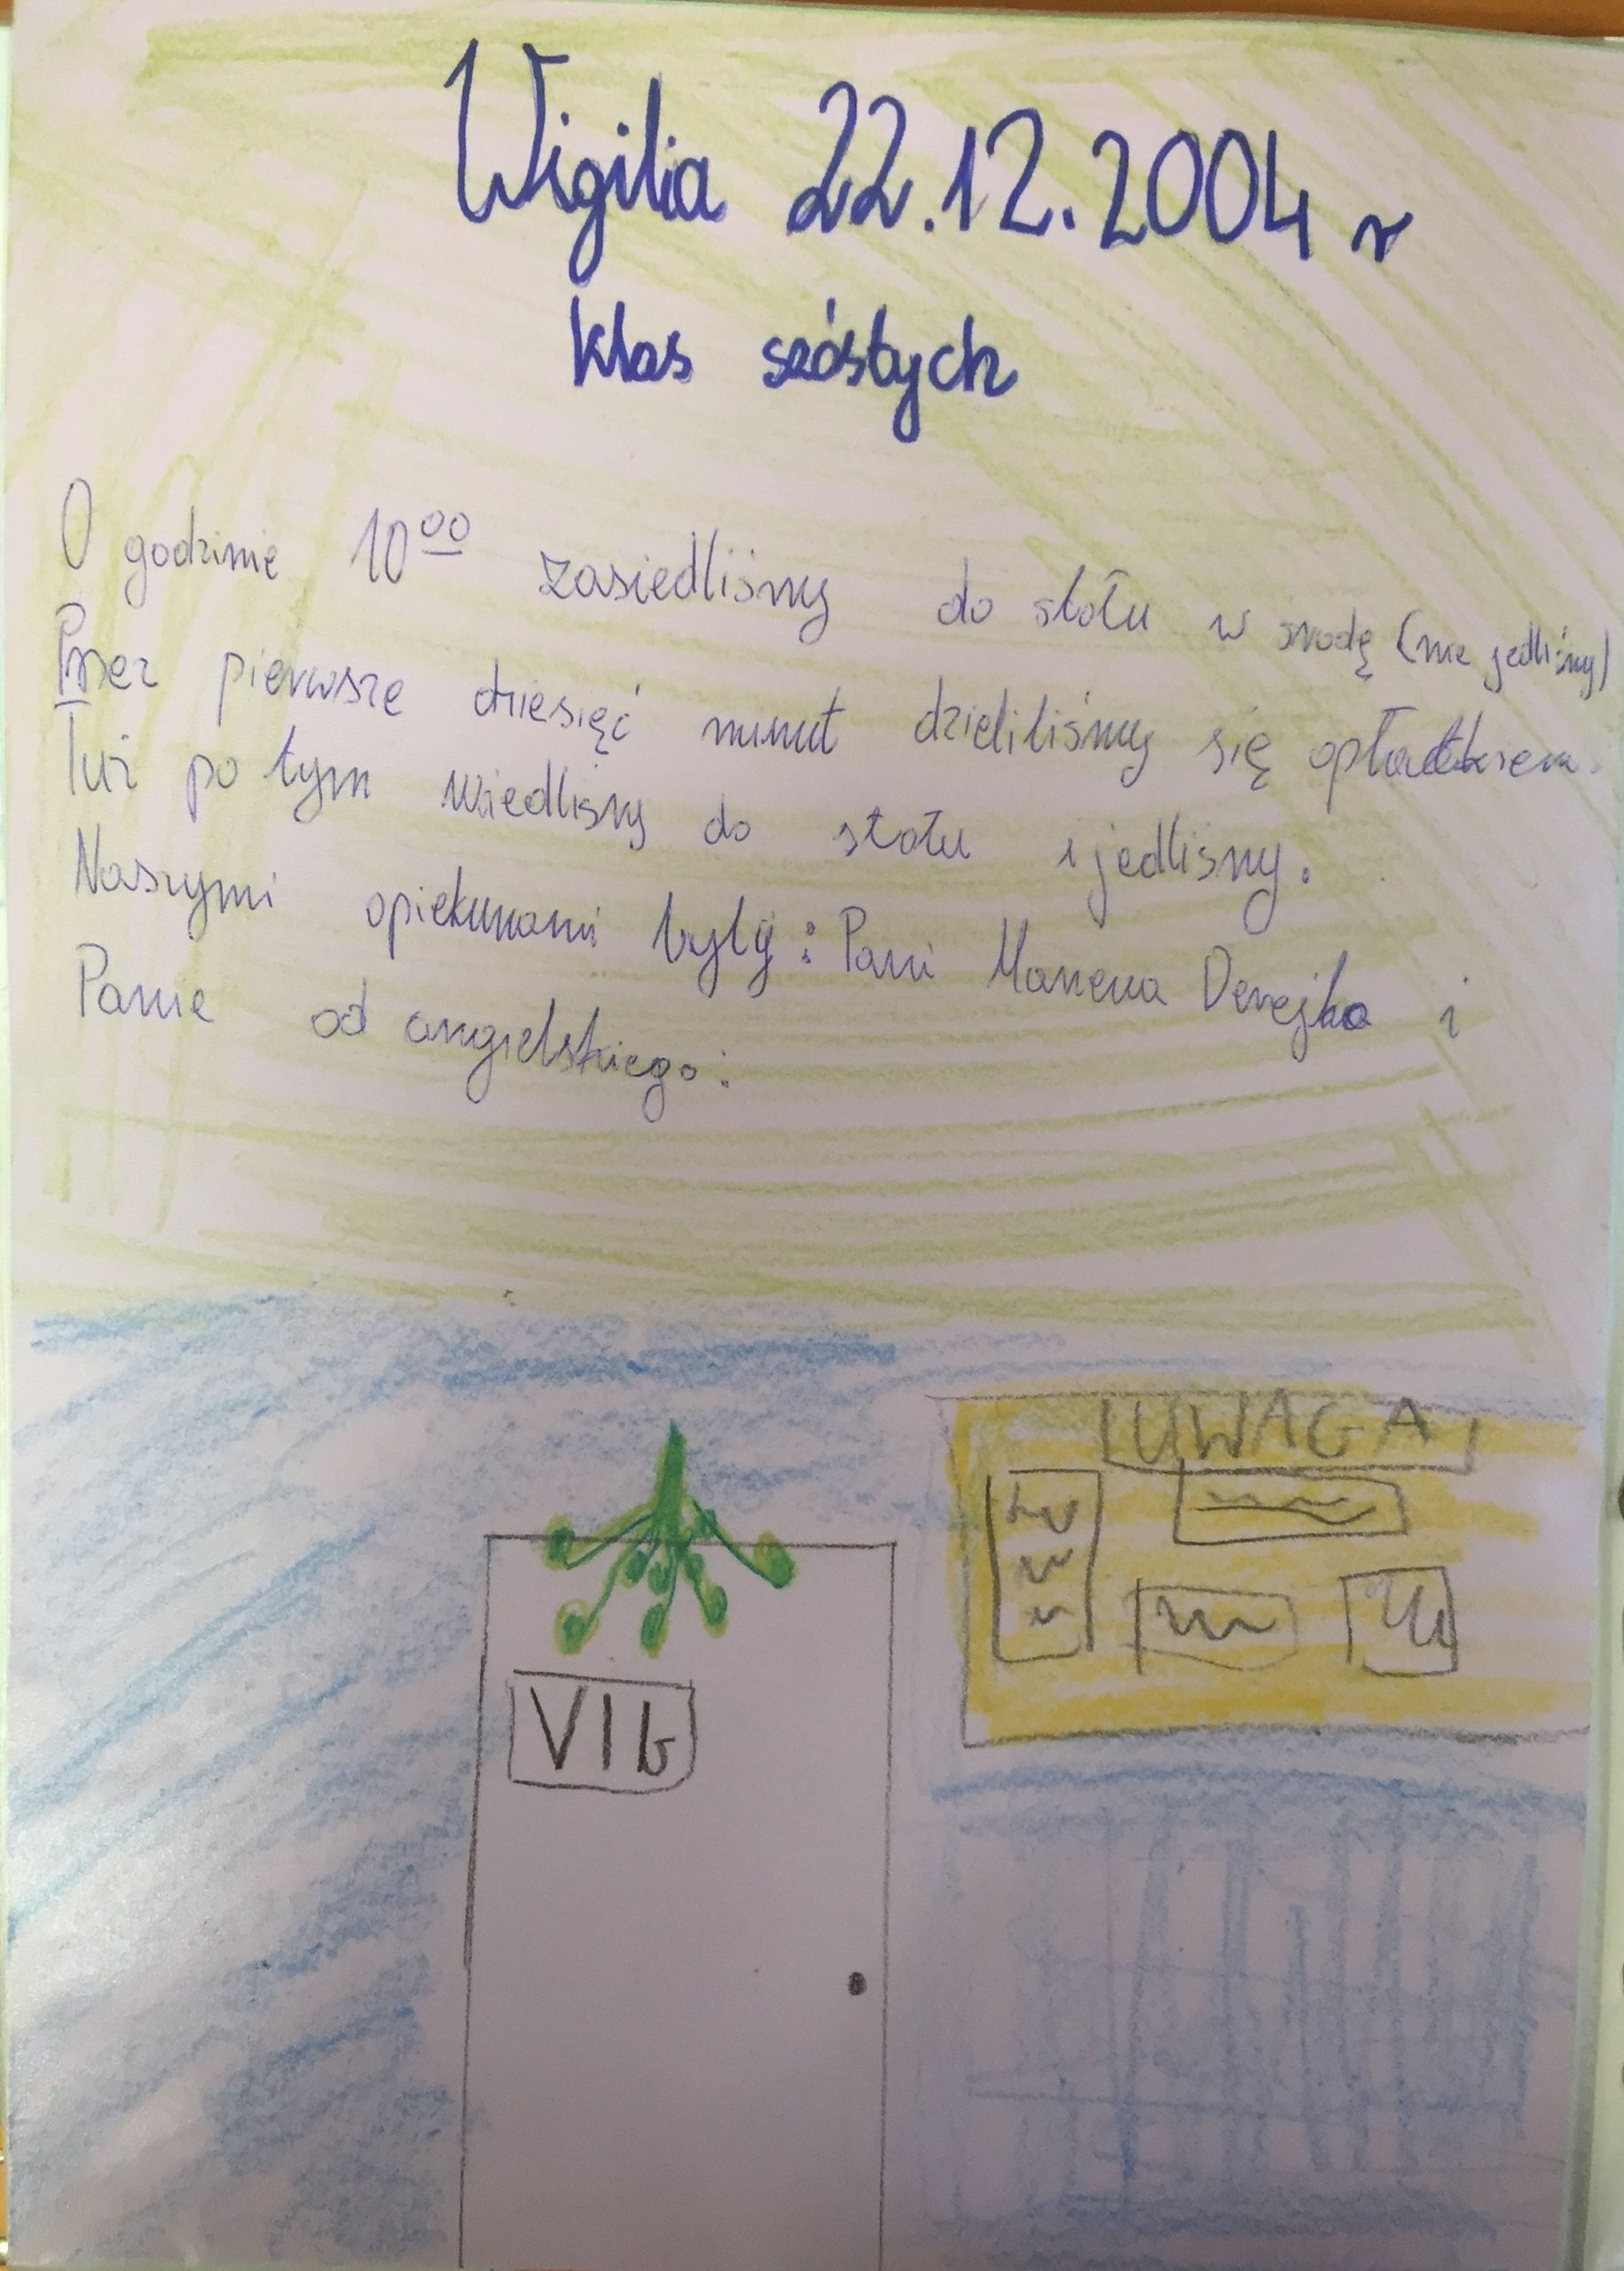 Wigilia 22.12.2004 r
klas szóstych
O godzinie 10⁰⁰ zasiedliśmy do stołu w środę (nie jedliśmy)
Przez pierwsze dziesięć minut dzieliliśmy się opłatkiem.
Tuż po tym siedliśmy do stołu i jedliśmy.
Naszymi opiekunami były: Pani Marzena Derejko i
Panie od angielskiego:
UWAGA
VI b